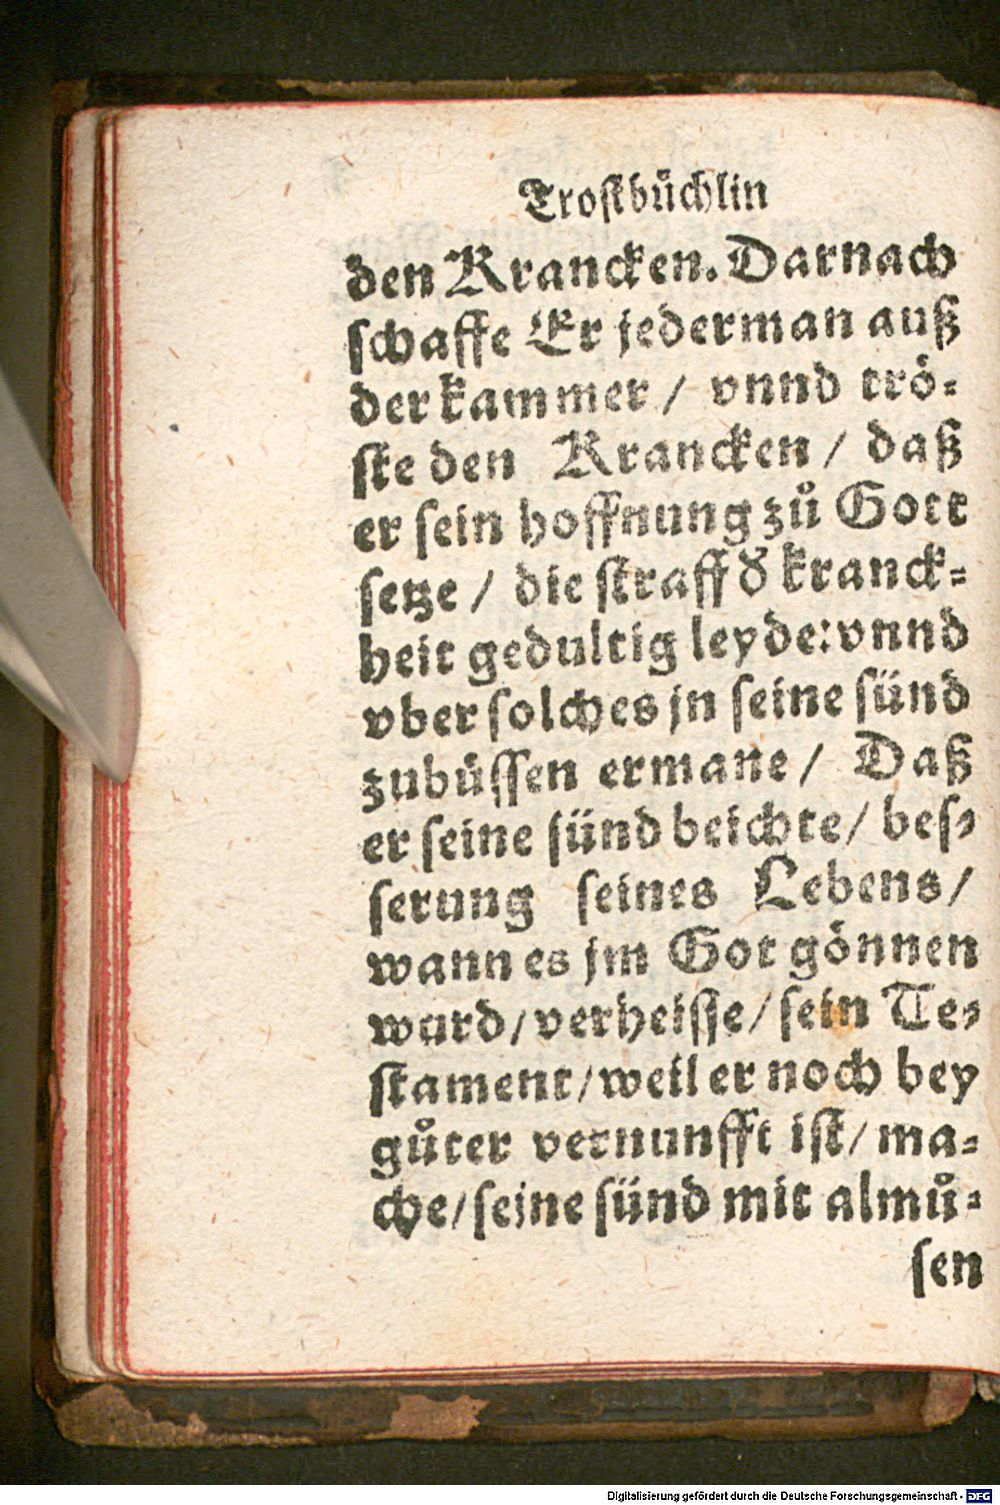 Troſtbüchlin
den Krancken. Darnach
ſchaffe Er jederman auß
der kammer / vnnd trö⸗
ſte den Krancken / daß
er ſein hoffnung zů Gott
ſetze / die ſtraff d᷑ kranck⸗
heit gedultig leyde: vnnd
vber ſolches jn ſeine ſünd
zubüſſen ermane / Daß
er ſeine ſünd beichte / beſ⸗
ſerung ſeines Lebens /
wann es jm Got gönnen
wurd / verheiſſe / ſein Te⸗
ſtament / weil er noch bey
gůter vernunfft iſt / ma⸗
che / ſeine ſünd mit almů⸗
ſen
Digitalisierung gefördert durch die Deutsche Forschungsgemeinschaft - DFG